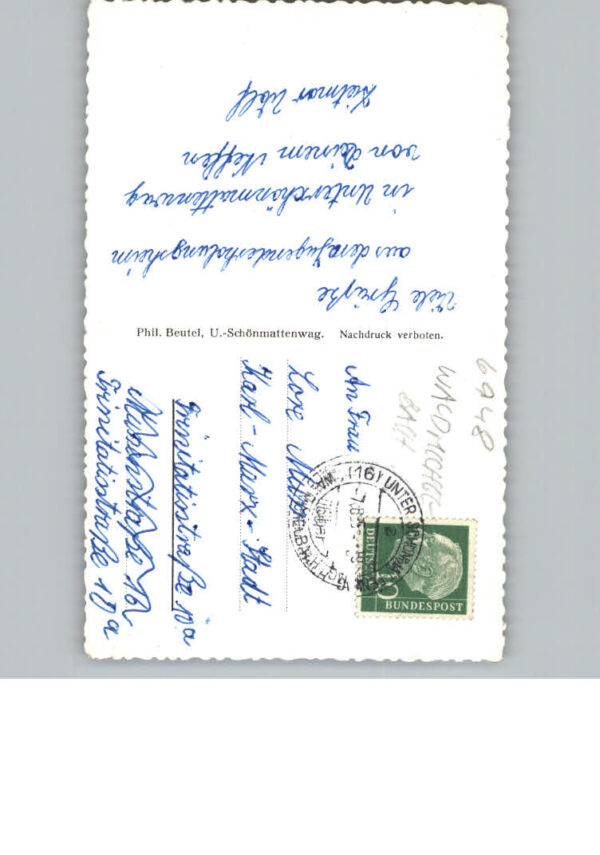 Viele Grüße
aus dem Jugenderholungsheim
in Unterschönmattenwag
von Deinem Neffen
Dietmar Wolf
Phil. Beutel, U.-Schönmattenwag. Nachdruck verboten.
An Frau
Lore
Karl-Marx-Stadt
Trinitatisstraße 10a
Trinitatisstraße 10a
6948
WALDMICHEL
BACH
(16) UNTER-SCHÖNMA
10
DEUTSCHE
BUNDESPOST